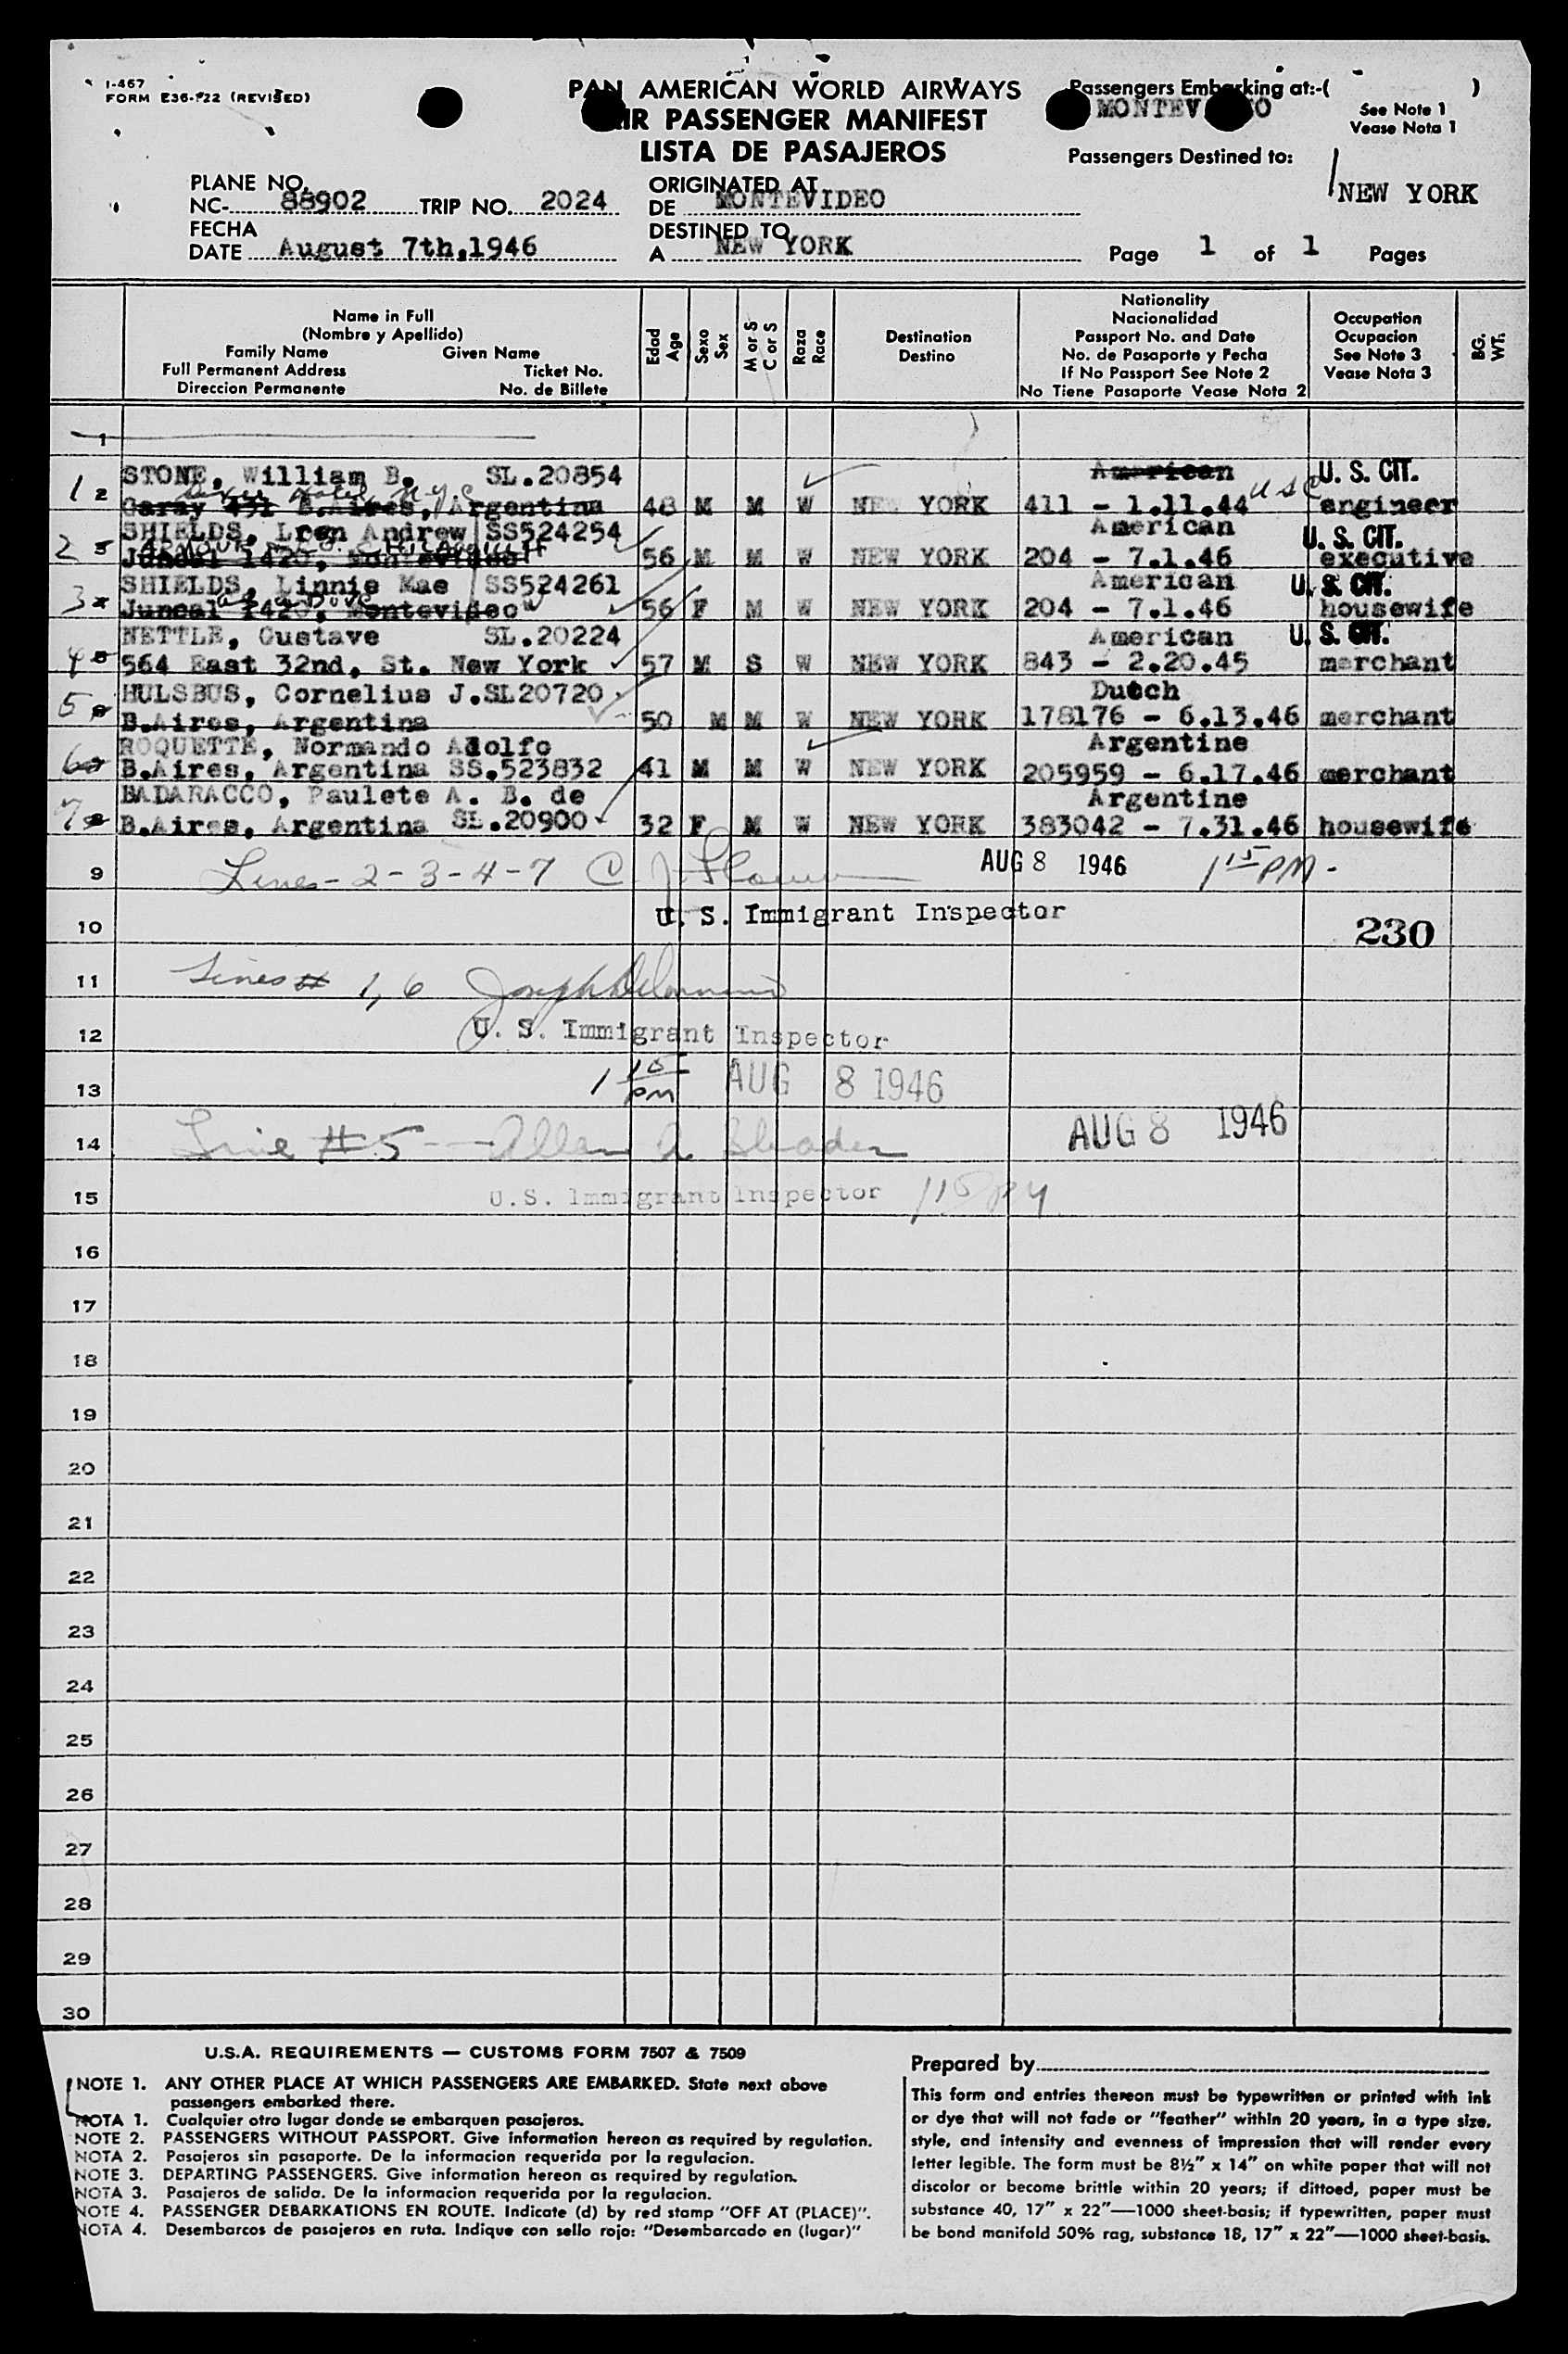 I-467
FORM E36-222 (REVISED)
PAN AMERICAN WORLD AIRWAYS
AIR PASSENGER MANIFEST
LISTA DE PASAJEROS
Passengers Embarking at:-( )
MONTEVIDEO
See Note 1
Vease Nota 1
Passengers Destined to:
NEW YORK
PLANE NO.
NC- 88902 TRIP NO. 2024
FECHA
DATE August 7th,1946
ORIGINATED AT
DE MONTEVIDEO
DESTINED TO
A NEW YORK
Page 1 of 1 Pages
Name in Full
(Nombre y Apellido)
Family Name Given Name
Full Permanent Address Ticket No.
Direccion Permanente No. de Billete
Edad
Age
Sexo
Sex
M or S
C or S
Raza
Race
Destination
Destino
Nationality
Nacionalidad
Passport No. and Date
No. de Pasaporte y Fecha
If No Passport See Note 2
No Tiene Pasaporte Vease Nota 2
Occupation
Ocupacion
See Note 3
Vease Nota 3
BG.
WT.
1
STONE, William B. SL.20854 American U. S. CIT.
Hotel N.Y.C
1 2 Caray 491 B.Aires, Argentina 48 M M W NEW YORK 411 - 1.11.44 USC engineer
SHIELDS, Lren Andrew SS524254 American U. S. CIT.
2 Juncal 1420, Montevideo 56 M M W NEW YORK 204 - 7.1.46 executive
SHIELDS, Linnie Mae SS524261 American U. S. CIT.
3 Juncal 1420, Montevideo 56 F M W NEW YORK 204 - 7.1.46 housewife
NETTLE, Gustave SL.20224 American U. S. CIT.
4 564 East 32nd, St. New York 57 M S W NEW YORK 843 - 2.20.45 merchant
HULSBUS, Cornelius J.SL20720 Dutch
5 B.Aires, Argentina 50 M M W NEW YORK 178176 - 6.13.46 merchant
ROQUETTE, Normando Adolfo Argentine
6 B.Aires, Argentina SS.523832 41 M M W NEW YORK 205959 - 6.17.46 merchant
BADARACCO, Paulete A. B. de Argentine
7 B.Aires, Argentina SL.20900 32 F M W NEW YORK 383042 - 7.31.46 housewife
9 Lines - 2 - 3 - 4 - 7 C. J. AUG 8 1946 1 15 PM -
U. S. Immigrant Inspector
10 230
11 Lines # 1, 6 Joseph
12 U. S. Immigrant Inspector
13 1 15 PM AUG 8 1946
14 Line # 5 - Allen A. AUG 8 1946
15 U.S. Immigrant Inspector 1 15 PM
16
17
18
19
20
21
22
23
24
25
26
27
28
29
30
U.S.A. REQUIREMENTS — CUSTOMS FORM 7507 & 7509
NOTE 1. ANY OTHER PLACE AT WHICH PASSENGERS ARE EMBARKED. State next above
passengers embarked there.
NOTA 1. Cualquier otro lugar donde se embarquen pasajeros.
NOTE 2. PASSENGERS WITHOUT PASSPORT. Give information hereon as required by regulation.
NOTA 2. Pasajeros sin pasaporte. De la informacion requerida por la regulacion.
NOTE 3. DEPARTING PASSENGERS. Give information hereon as required by regulation.
NOTA 3. Pasajeros de salida. De la informacion requerida por la regulacion.
NOTE 4. PASSENGER DEBARKATIONS EN ROUTE. Indicate (d) by red stamp "OFF AT (PLACE)".
NOTA 4. Desembarcos de pasajeros en ruta. Indique con sello rojo: "Desembarcado en (lugar)"
Prepared by
This form and entries thereon must be typewritten or printed with ink
or dye that will not fade or "feather" within 20 years, in a type size,
style, and intensity and evenness of impression that will render every
letter legible. The form must be 8½" x 14" on white paper that will not
discolor or become brittle within 20 years; if dittoed, paper must be
substance 40, 17" x 22"—1000 sheet-basis; if typewritten, paper must
be bond manifold 50% rag, substance 18, 17" x 22"—1000 sheet-basis.